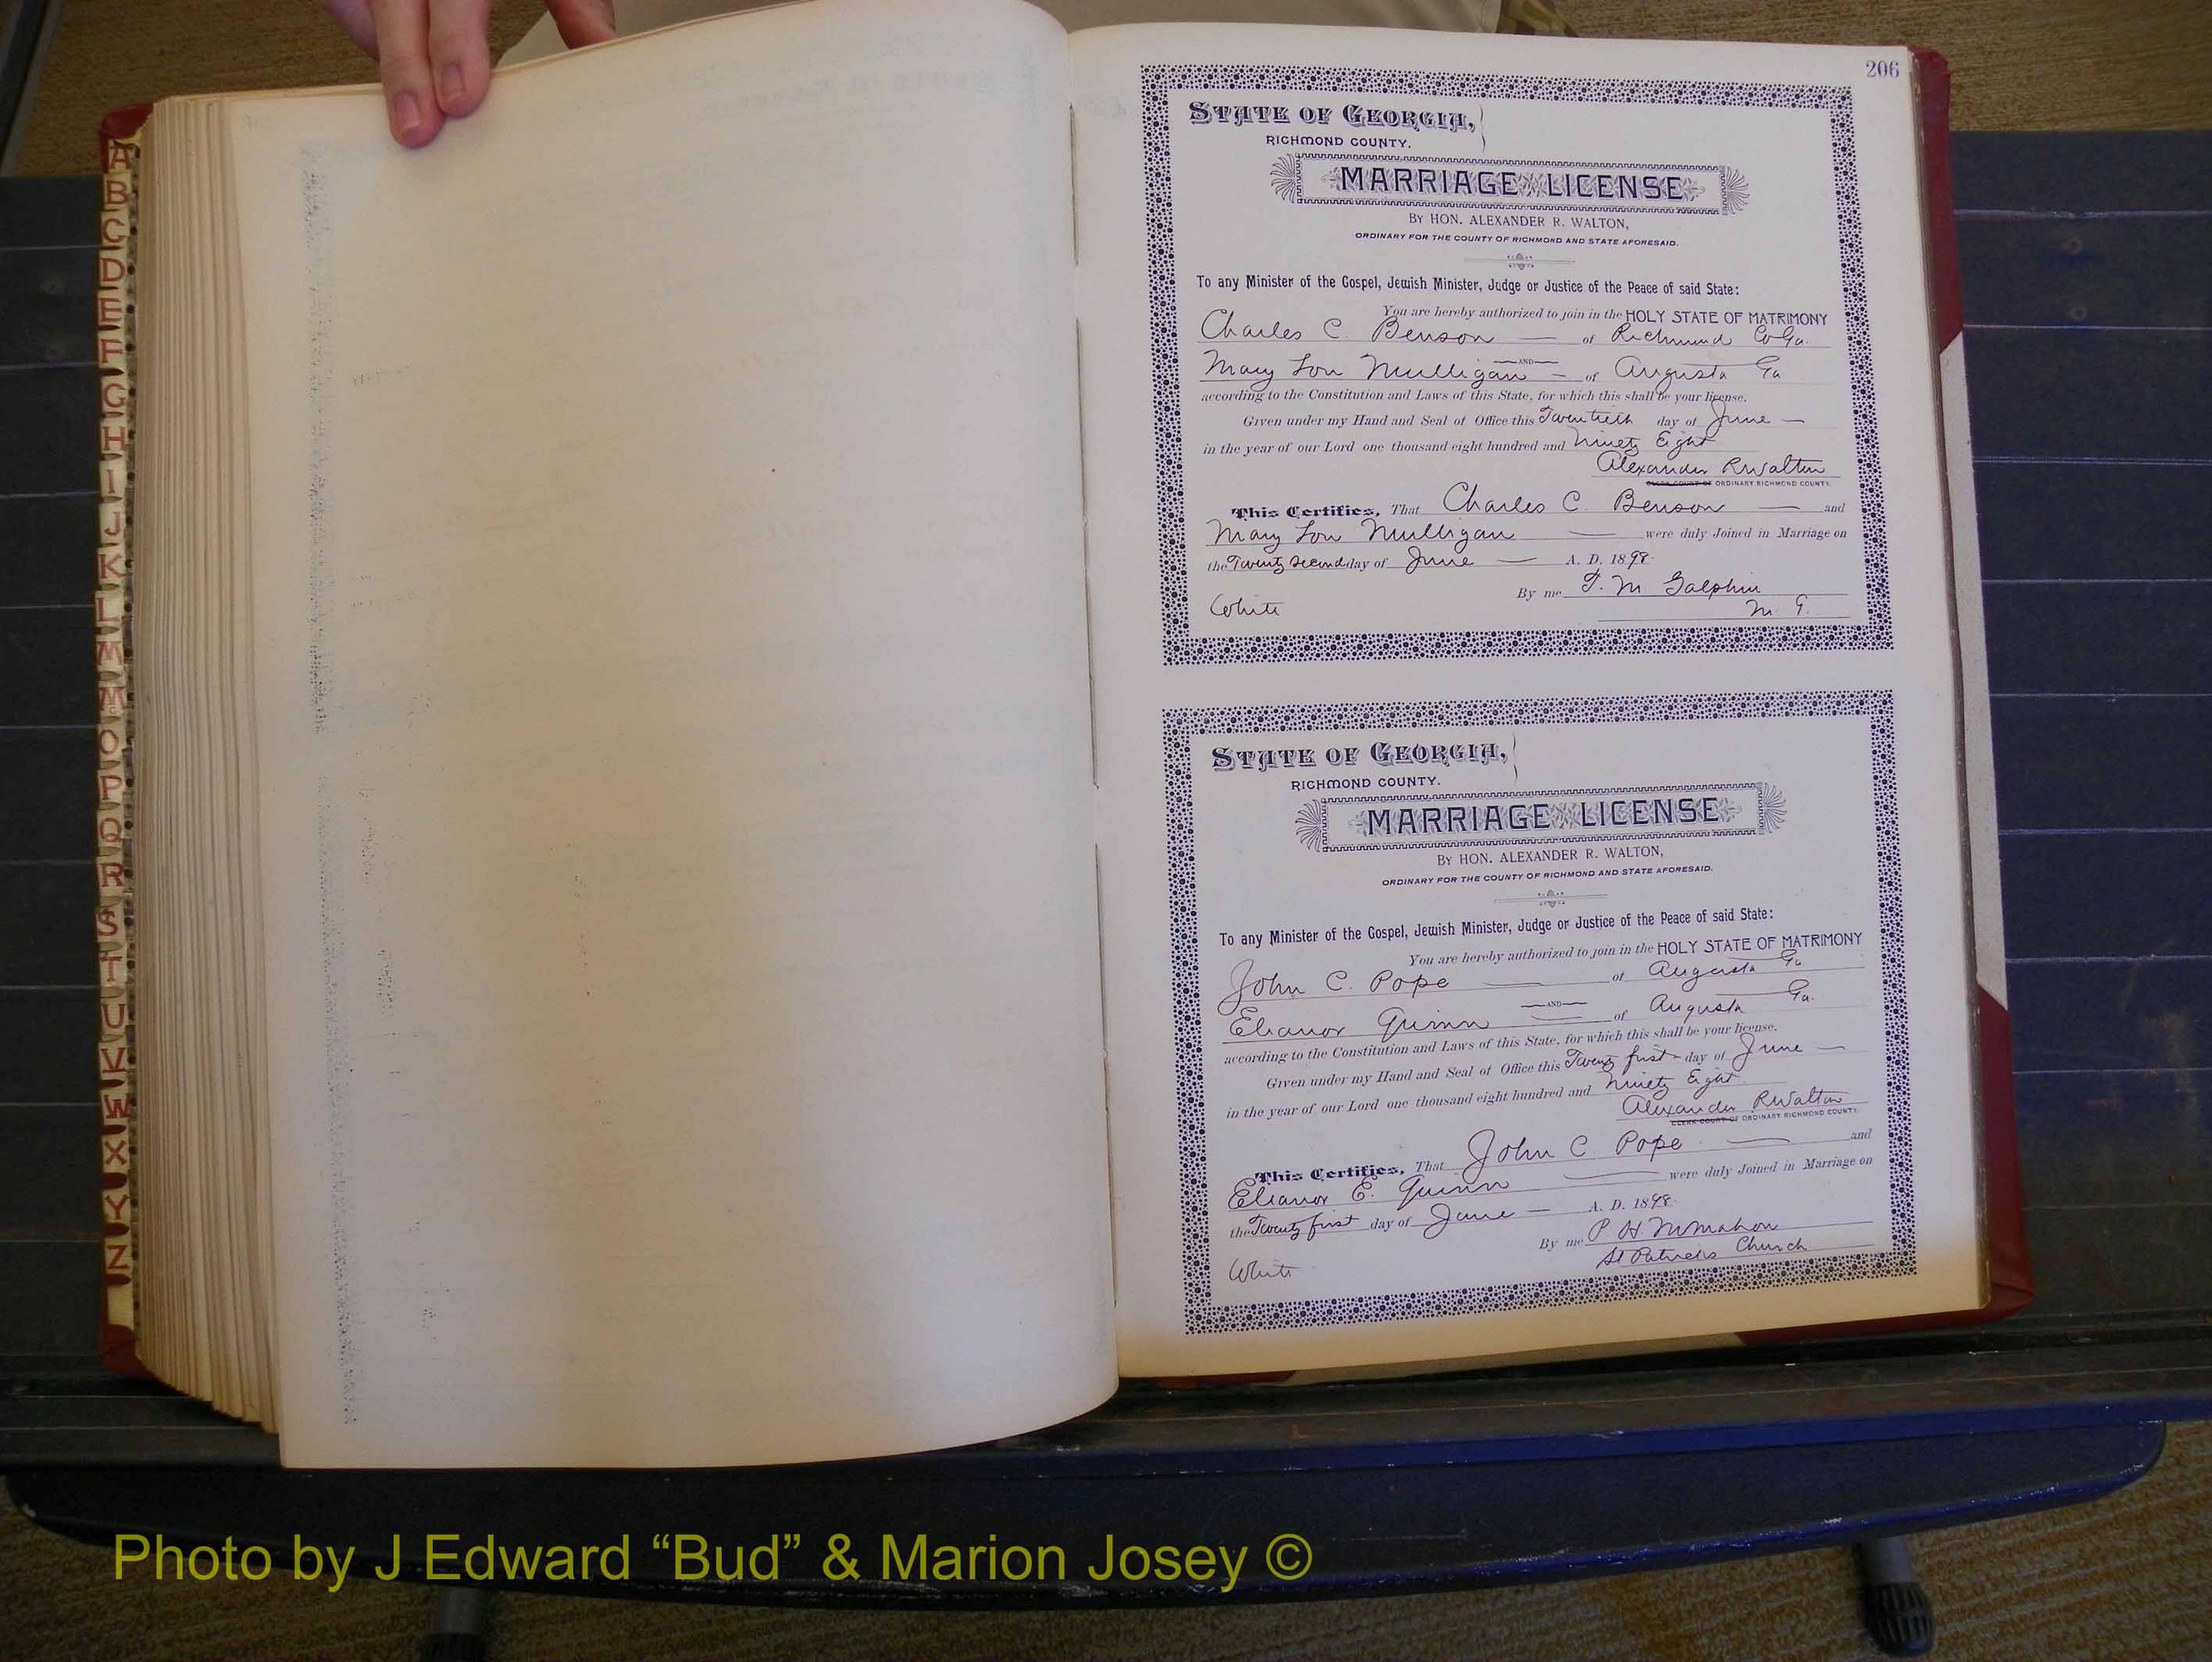 206
A
B
C
D
E
F
G
H
I
J
K
L
M
Mc
O
P
Q
R
S
T
U
V
W
X
Y
Z
STATE OF GEORGIA,
RICHMOND COUNTY.
MARRIAGE LICENSE
BY HON. ALEXANDER R. WALTON,
ORDINARY FOR THE COUNTY OF RICHMOND AND STATE AFORESAID.
To any Minister of the Gospel, Jewish Minister, Judge or Justice of the Peace of said State:
You are hereby authorized to join in the HOLY STATE OF MATRIMONY
Charles C. Benson — of Richmond Co Ga.
—AND—
Mary Lou Mulligan — of Augusta Ga
according to the Constitution and Laws of this State, for which this shall be your license.
Given under my Hand and Seal of Office this Twentieth day of June —
in the year of our Lord one thousand eight hundred and Ninety Eight
Alexander R Walton
CLERK COURT OF ORDINARY RICHMOND COUNTY.
This Certifies, That Charles C. Benson — and
Mary Lou Mulligan — were duly Joined in Marriage on
the Twenty Second day of June — A. D. 1898.
By me T. M Galphin
White M. G.
STATE OF GEORGIA,
RICHMOND COUNTY.
MARRIAGE LICENSE
BY HON. ALEXANDER R. WALTON,
ORDINARY FOR THE COUNTY OF RICHMOND AND STATE AFORESAID.
To any Minister of the Gospel, Jewish Minister, Judge or Justice of the Peace of said State:
You are hereby authorized to join in the HOLY STATE OF MATRIMONY
John C. Pope — of Augusta Ga
—AND—
Eleanor Quinn — of Augusta Ga.
according to the Constitution and Laws of this State, for which this shall be your license.
Given under my Hand and Seal of Office this Twenty first day of June —
in the year of our Lord one thousand eight hundred and Ninety Eight
Alexander R Walton
CLERK COURT OF ORDINARY RICHMOND COUNTY.
This Certifies, That John C. Pope — and
Eleanor E. Quinn — were duly Joined in Marriage on
the Twenty first day of June — A. D. 1898.
By me P. H. McMahon
St Patricks Church
White
Photo by J Edward “Bud” & Marion Josey ©